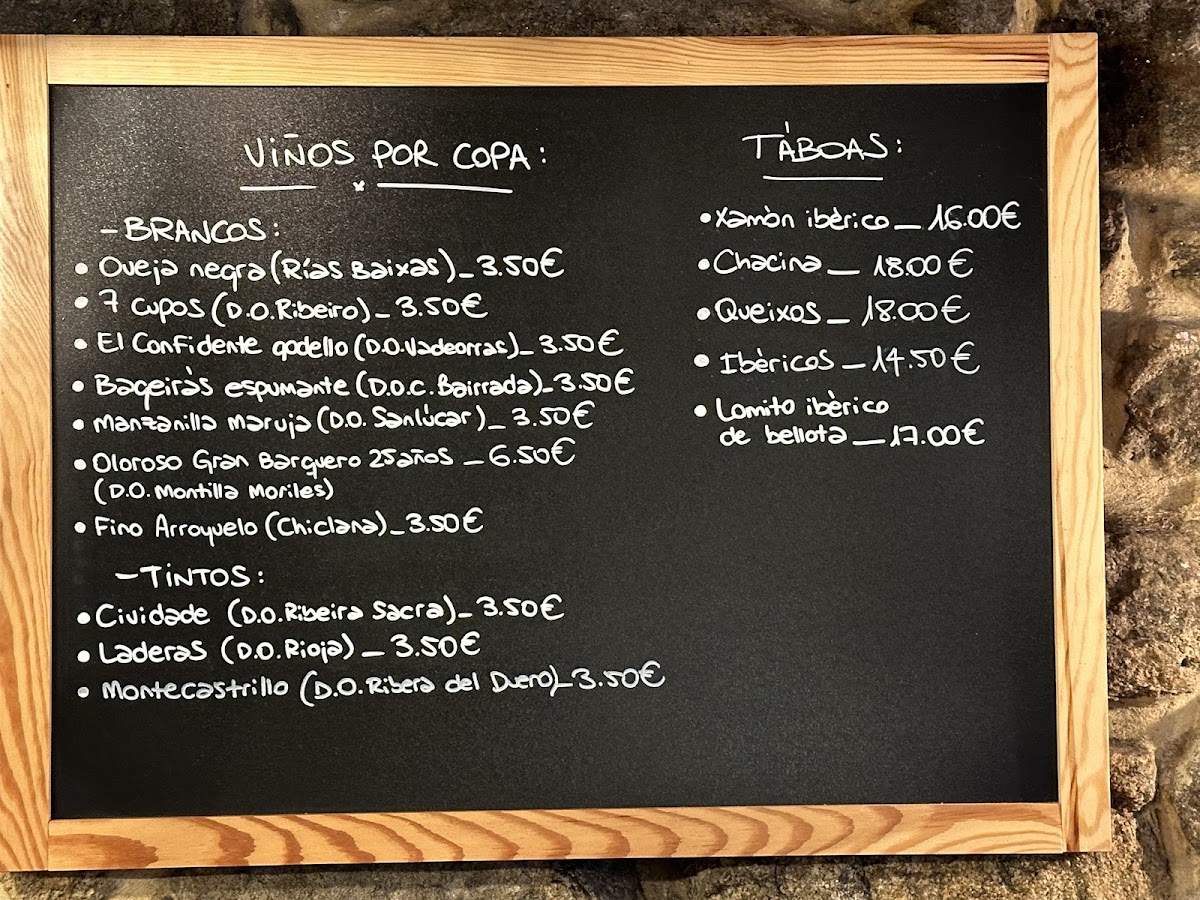 VIÑOS POR COPA:
- BRANCOS:
• Oveja negra (Rías Baixas) - 3.50€
• 7 cupos (D.O. Ribeiro) - 3.50€
• El Confidente godello (D.O. Vadeorras) - 3.50€
• Bageiràs espumante (D.O.C. Bairrada) - 3.50€
• Manzanilla Maruja (D.O. Sanlúcar) - 3.50€
• Oloroso Gran Barquero 25 años - 6.50€
(D.O. Montilla Moriles)
• Fino Arroyuelo (Chiclana) - 3.50€
- TINTOS:
• Cividade (D.O. Ribeira Sacra) - 3.50€
• Laderas (D.O. Rioja) - 3.50€
• Montecastrillo (D.O. Ribera del Duero) - 3.50€
TÀBOAS:
• Xamòn ibèrico - 16.00€
• Chacina - 18.00€
• Queixos - 18.00€
• Ibèricos - 14.50€
• Lomito ibèrico
de bellota - 17.00€